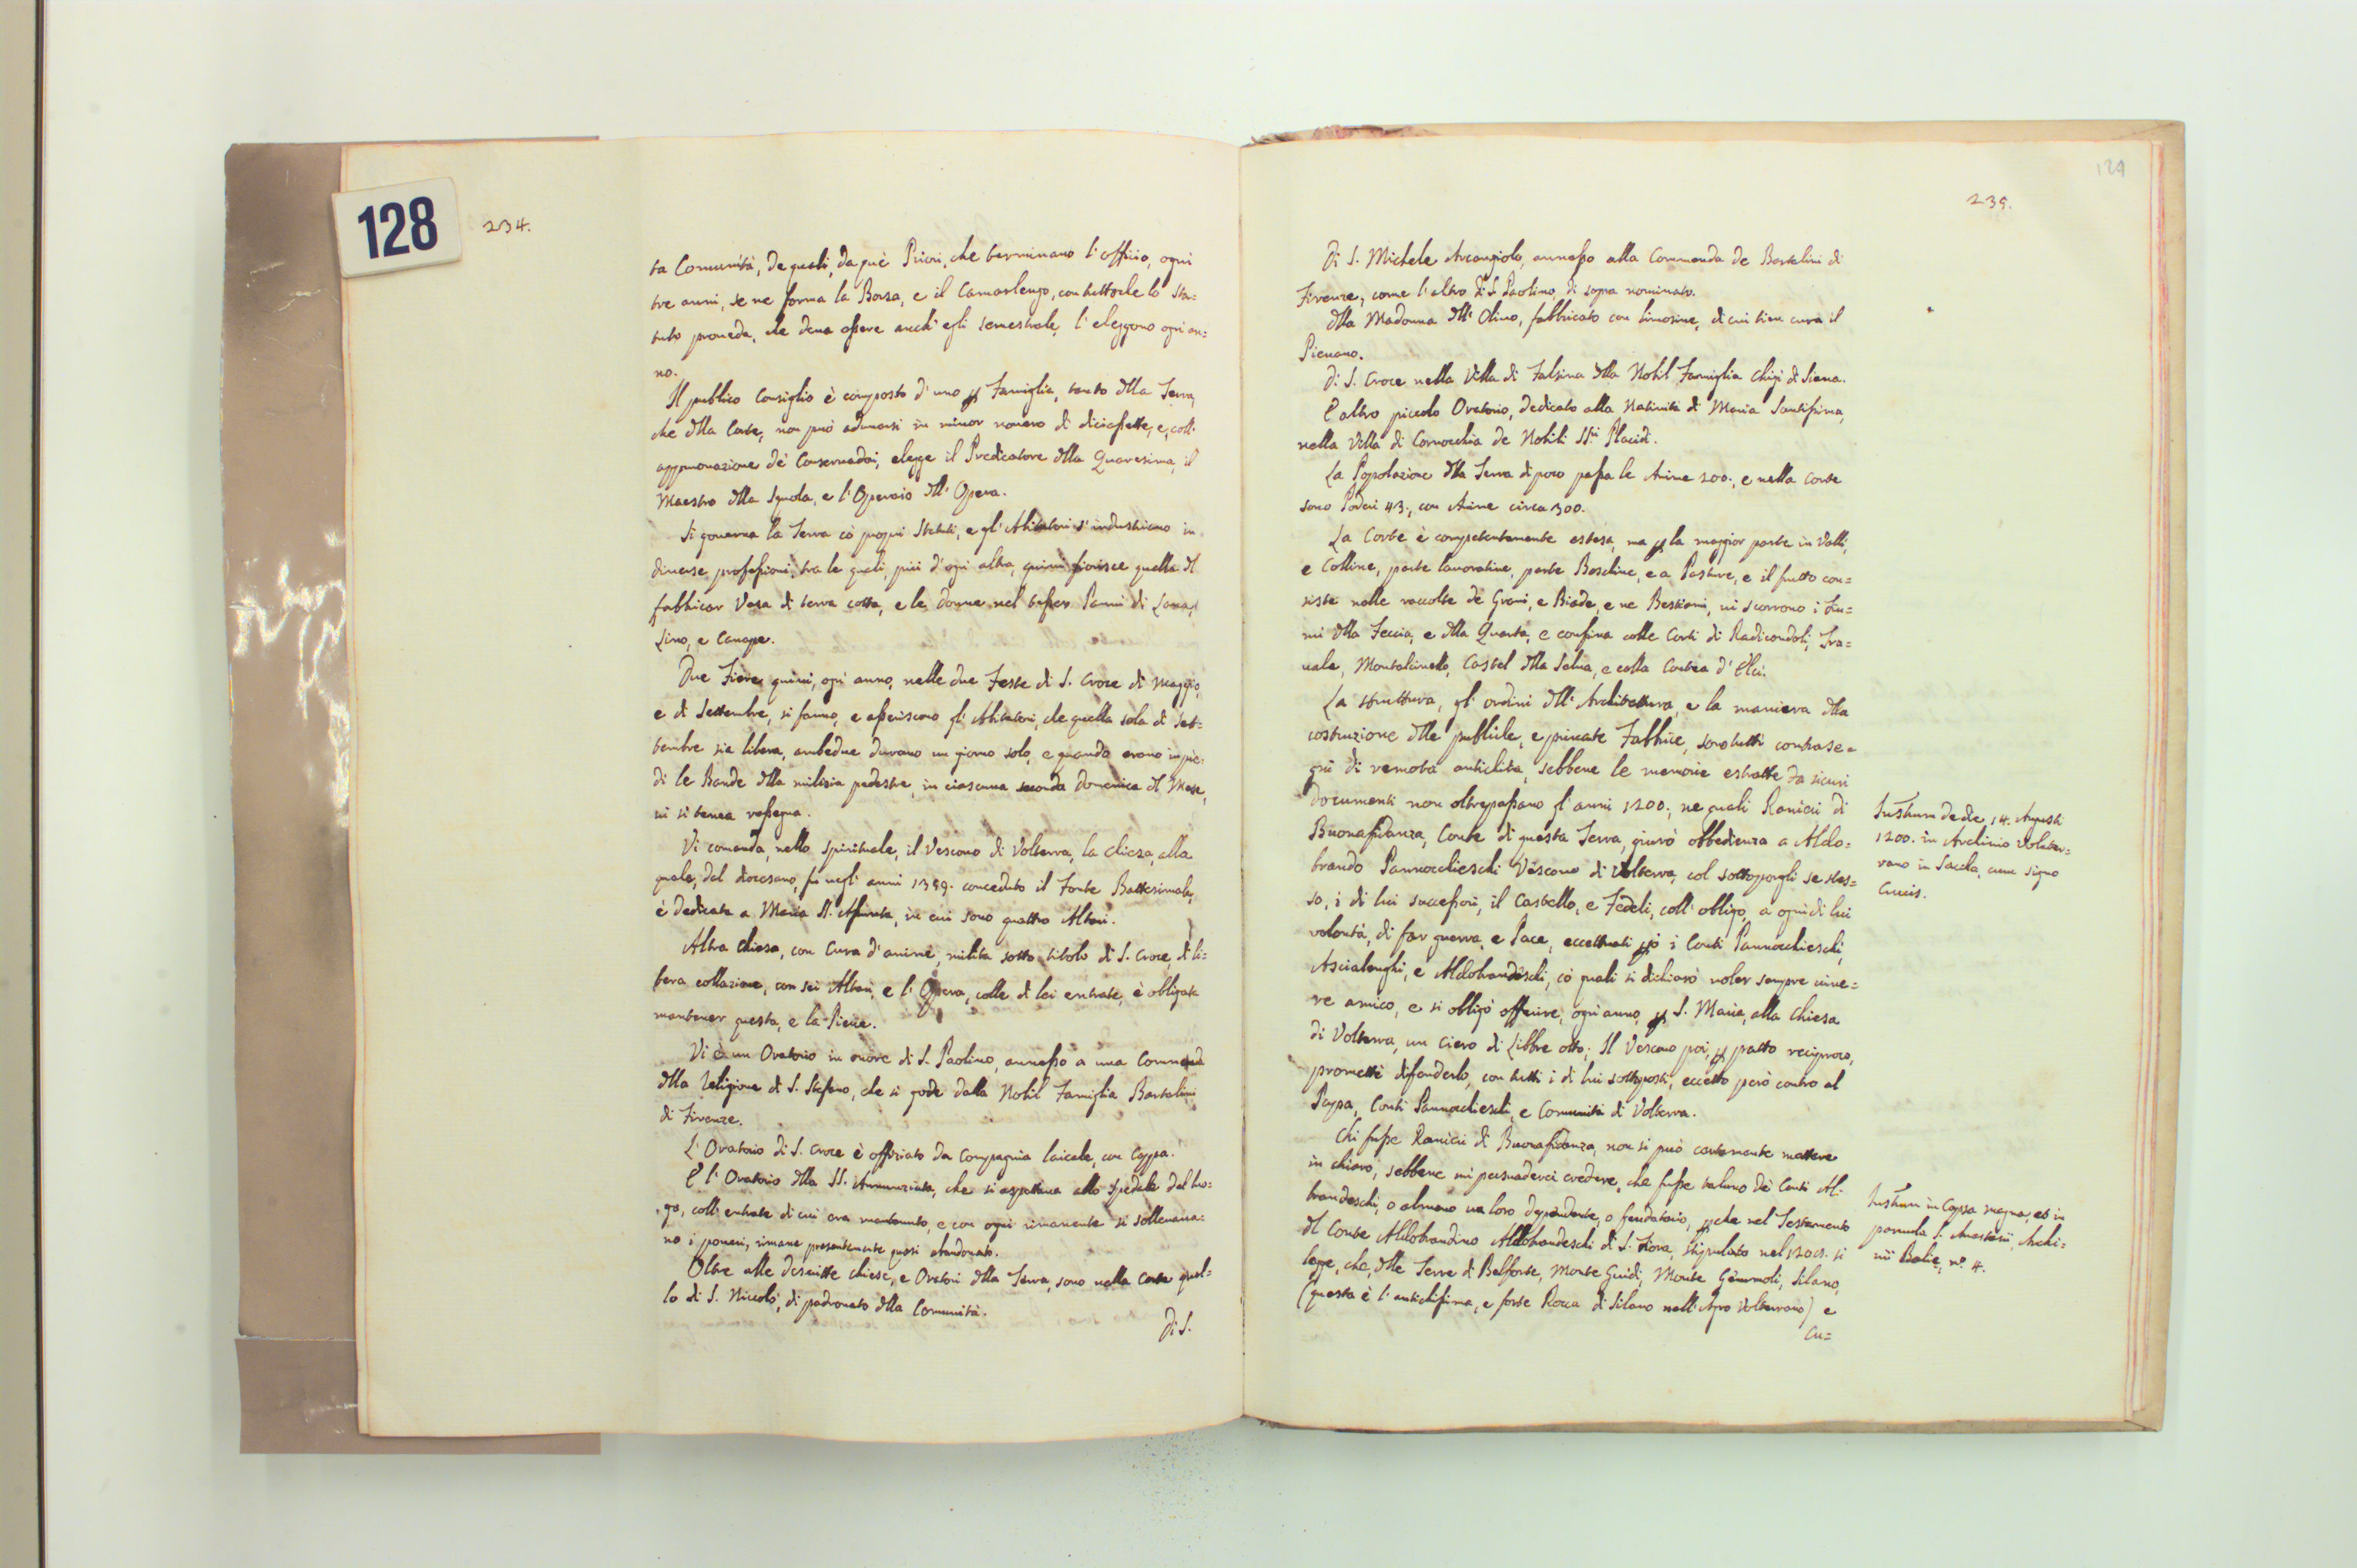 128
234.
ta Comunità, de quali, da què Priori, che terminano l'offizio, ogni
tre anni, se ne forma la Borsa, e il Camarlengo, con tuttoche lo Sta=
tuto proveda, che deva essere anch'egli semestrale, l'eleggono ogn'an=
no.
Il publico Consiglio è composto d'uno per Famiglia, tanto della Terra,
che della Corte, non può adunarsi in minor novero di diciassette, e, coll'
approvazione de' Conservadori, elegge il Predicatore della Quaresima, il
Maestro della Squola, e l'Operaio dell'Opera.
Si governa la Terra cò propri Statuti, e gl'Abitatori s'industriano in
diverse professioni, tra le quali, più d'ogni altra, quivi fiorisce quella di
fabbricar Vasa di terra cotta, e le donne nel tesser Panni di Lana,
Lino, e Canape.
Due Fiere quivi, ogni anno, nelle due Feste di S. Croce di Maggio,
e di Settembre, si fanno, e asseriscono gl'Abitatori, che quella sola di Set=
tembre sia libera, ambedue durano un giorno solo, e quando erano in pie=
di le Bande della milizia pedestre, in ciascuna seconda Domenica del Mese,
vi si tenea rassegna.
Vi comanda, nello spirituale, il Vescovo di Volterra, la chiesa, alla
quale, dal diocesano, fù negl'anni 1359. conceduto il Fonte Battesimale,
è dedicata a Maria SS. Assunta, in cui sono quattro Altari.
Altra chiesa, con Cura d'anime, milita sotto titolo di S. Croce, di li=
bera collazione, con sei Altari, e l'Opera, colle di lei entrate, è obligata
mantener questa, e la Pieve.
Vi è un Oratorio in onore di S. Paolino, annesso a una Commenda
della Religione di S. Stefano, che si gode dalla Nobil Famiglia Bartolini
di Firenze.
L'Oratorio di S. Croce è offiziato da Compagnia laicale, con Cappa.
E l'Oratorio della SS. Annunziata, che si aspettava allo Spedale del luo=
go, coll'entrate di cui era mantenuto, e con ogni rimanente si sollevava=
no i poveri, rimane presentemente quasi abandonato.
Oltre alle descritte chiese, e Oratori della Terra, sono nella Corte quel=
lo di S. Niccolò, di padronato della Comunità.
Di S.
129
235.
Di S. Michele Arcangiolo, annesso alla Commenda de Bartolini di
Firenze, come l'altro di S. Paolino, di sopra nominato.
Della Madonna dell'Olivo, fabbricato con limosine, di cui tien cura il
Pievano.
Di S. Croce nella Villa di Falsina della Nobil Famiglia Chigi di Siena.
E altro piccolo Oratorio, dedicato alla Natività di Maria Santissima,
nella Villa di Cornocchia de Nobili SS.ri Placidi.
La Popolazione della Terra di poco passa le Anime 200., e nella Corte
sono Poderi 43., con Anime circa 300.
La Corte è competentemente estesa, ma per la maggior parte in Valli,
e Colline, parte lavorative, parte Boschive, e a Pasture, e il frutto con=
siste nelle raccolte de Grani, e Biade, e ne Bestiami, vi scorrono i Fiu=
mi della Feccia, e della Quarta, e confina colle Corti di Radicondoli, Tra=
vale, Montalcinello, Castel della Selva, e colla Contea d'Elci.
La struttura, gl'ordini dell'Architettura, e la maniera della
costruzione delle publiche, e private Fabbriche, sono tutti contrase=
gni di remota antichità, sebbene le memorie estratte da sicuri
documenti non oltrepassano gl'anni 1200., ne quali Ranieri di
Buonafidanza, Conte di questa Terra, giurò obbedienza a Aldo=
brando Pannocchieschi Vescovo di Volterra, col sottoporgli se stes=
so, i di lui successori, il Castello, e Fedeli, coll'obligo, a ogni di lui
volontà, di far guerra, e Pace, eccettuati però i Conti Pannocchieschi,
Ascialenghi, e Aldobrandeschi, cò quali si dichiarò voler sempre vive=
re amico, e si obligò offerire, ogni anno, per S. Maria, alla Chiesa
di Volterra, un Ciero di Libbre otto; Il Vescovo poi, per patto reciproco,
promette difenderlo, con tutti i di lui sottoposti, eccetto però contro al
Papa, Conti Pannocchieschi, e Comunità di Volterra.
Chi fusse Ranieri di Buonafidanza, non si può certamente mettere
in chiaro, sebbene mi persuaderei credere, che fusse taluno dè Conti Al=
brandeschi, o almeno un loro dependente, o feudatario, perche nel Testamento
del Conte Aldobrandino Aldobrandeschi di S. Fiora, stipulato nel 1208. si
legge, che, delle Terre di Belforte, Monte Guidi, Monte Gemmoli, Silano,
(questa è l'antichissima, e forte Rocca di Silano nell'Agro Volterrano) e
Cu=
Instrum de die 14. Augusti
1200. in Archivio Volater=
rano in Saccha, cum signo
Crucis.
Instrum in Capsa magna, et in
parvula S. Anastasii, Archi=
vii Balie, n.° 4.